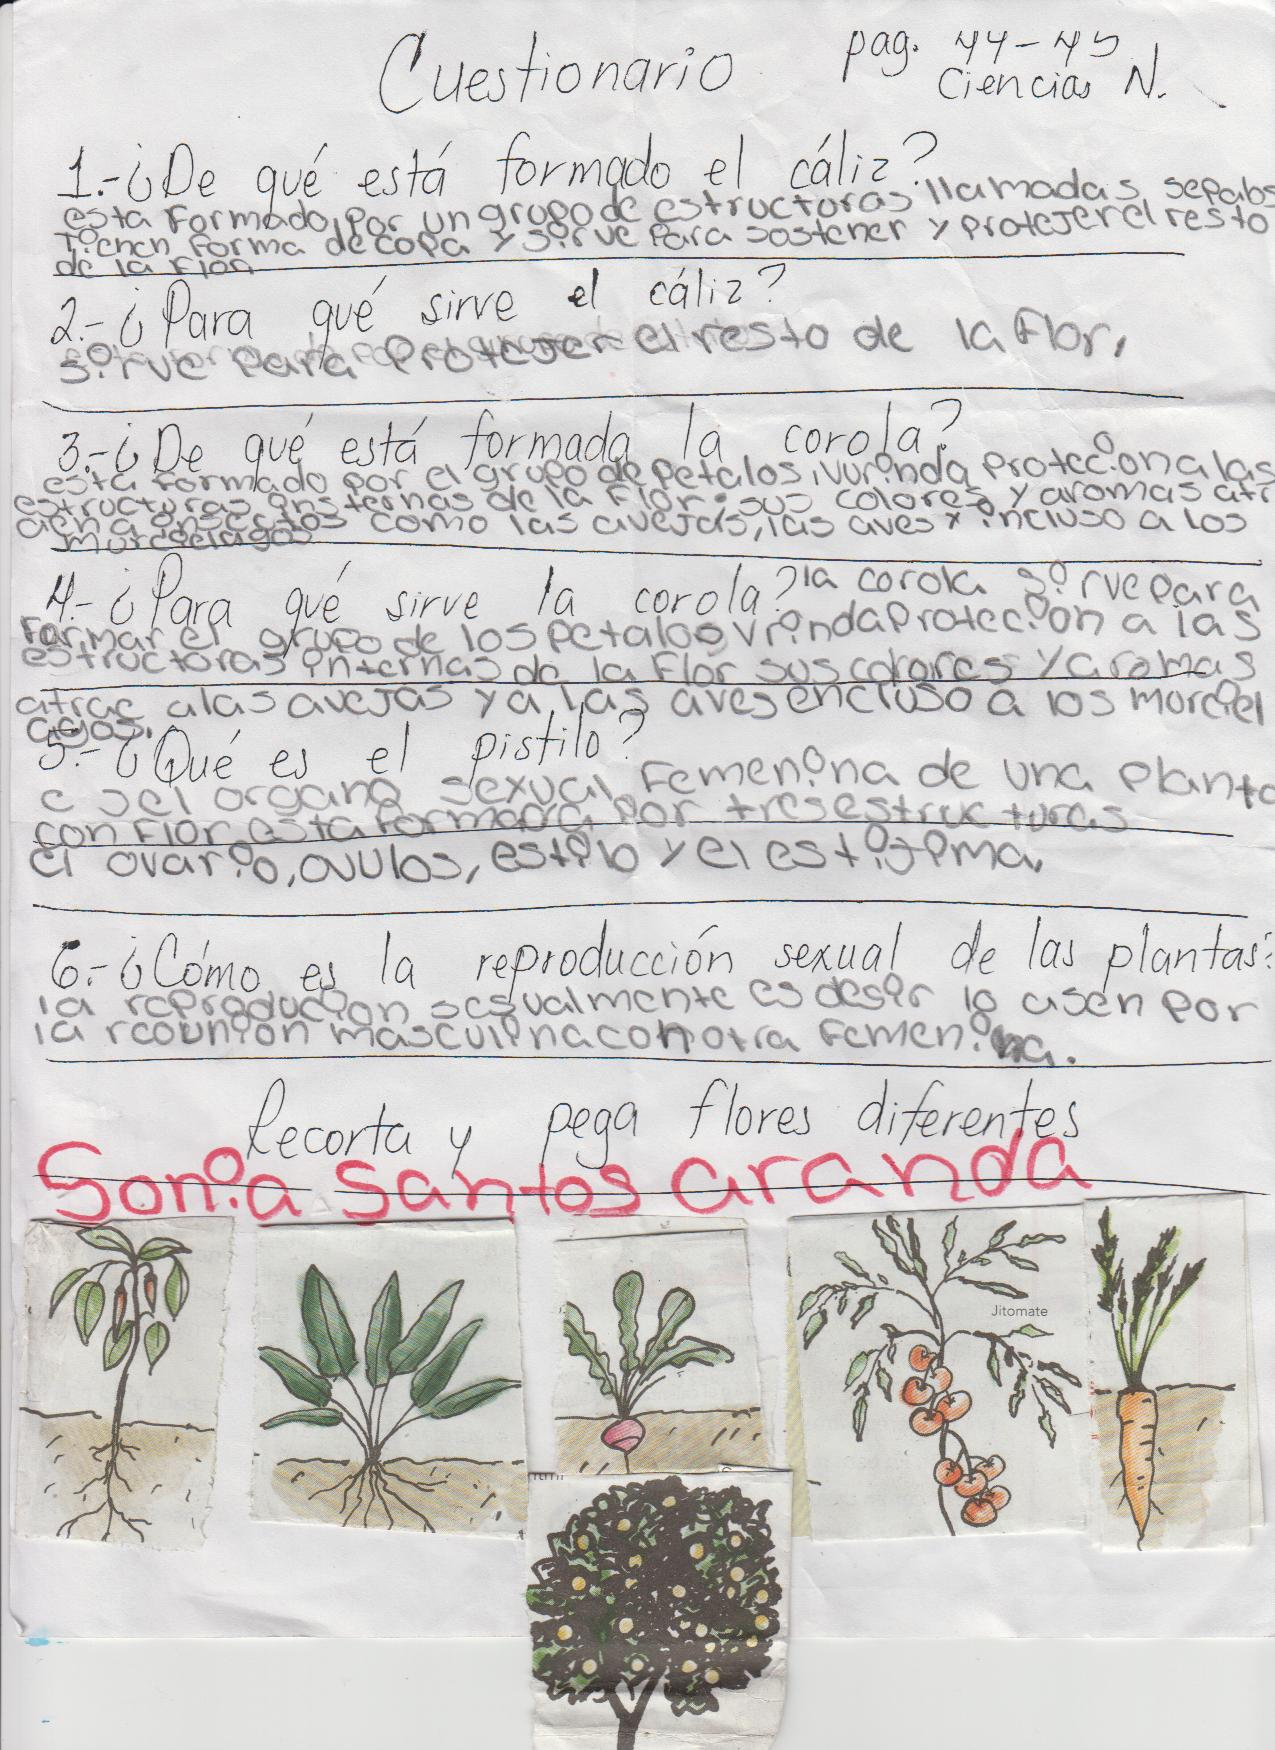 Cuestionario
pag. 44-45
Ciencias N.
1.-¿De qué está formado el cáliz?
esta formado por un grupo de estructuras llamadas sepalos
tienen forma de copa y sirve para sostener y protejer el resto
de la flor
2.-¿Para qué sirve el cáliz?
sirve para protejer el resto de la flor,
3.-¿De qué está formada la corola?
esta formado por el grupo de petalos, vurinda protección a las
estructuras insternas de la flor. sus colores y aromas atr
aen a insectos como las avejas, las aves y incluso a los
murcielagos
4.-¿Para qué sirve la corola? la corola sirve para
formar el grupo de los petalos vrinda protección a las
estructuras internas de la flor sus colores y aromas
atrae a las avejas y a las aves encluso a los morciel
agos.
5.-¿Qué es el pistilo?
es el organo sexual femenina de una planta
con flor esta formada por tres estructuras
el ovario, ovulos, estilo y el estigima.
6.-¿Cómo es la reproducción sexual de las plantas?
la reproducion sesualmente es desir lo asen por
la reounion masculina con otra femenina.
Recorta y pega flores diferentes
Sonia Santos aranda
Jitomate